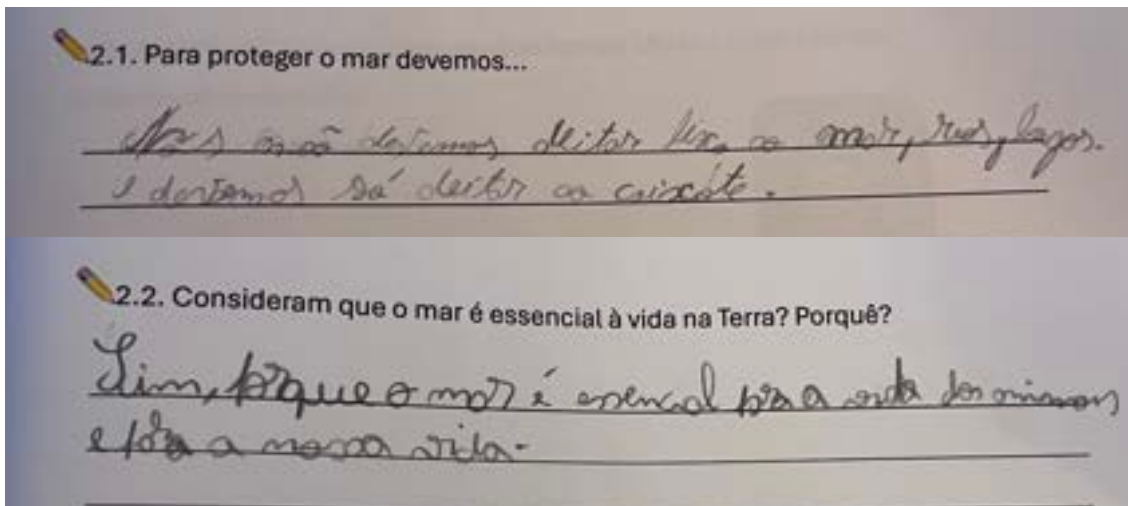 2.1. Para proteger o mar devemos...
Nós não devemos deitar lixo ao mar, rios, lagos.
e devemos só deitar ao caixote.
2.2. Consideram que o mar é essencial à vida na Terra? Porquê?
Sim, porque o mar é essencal para a vida dos animais
e para a nossa vida.